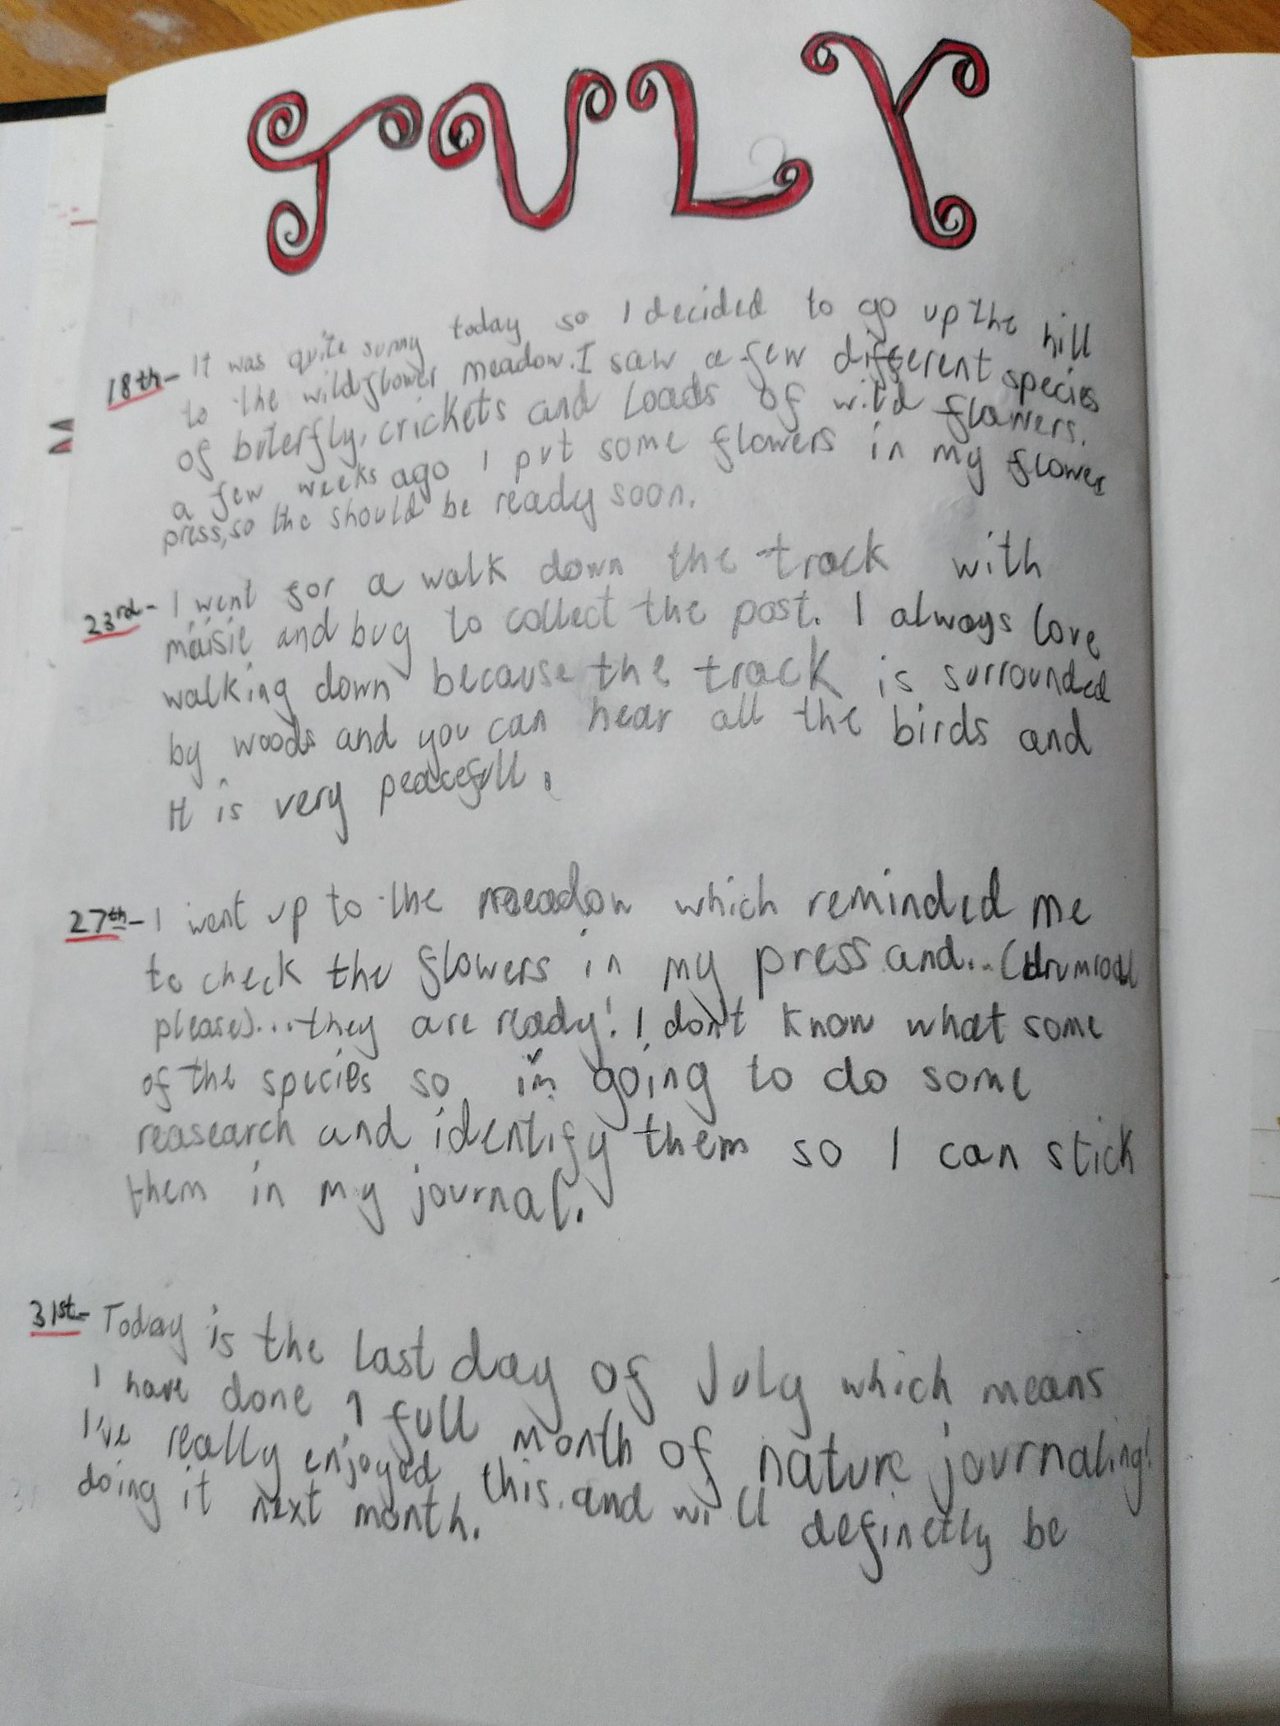 JULY
18th- It was quite sunny today so I decided to go up the hill
to the wildflower meadow. I saw a few different species
of buterfly, crickets and loads of wild flowers.
a few weeks ago I put some flowers in my flower
press, so the should be ready soon.
23rd- I went for a walk down the track with
maisie and bug to collect the post. I always love
walking down because the track is surrounded
by woods and you can hear all the birds and
it is very peacefull.
27th- I went up to the meadow which reminded me
to check the flowers in my press and... (drumroll
please)... they are ready! I don't know what some
of the species so i'm going to do some
reasearch and identify them so I can stick
them in my journal.
31st- Today is the last day of July which means
I have done 1 full month of nature journaling!
I've really enjoyed this and will definetly be
doing it next month.